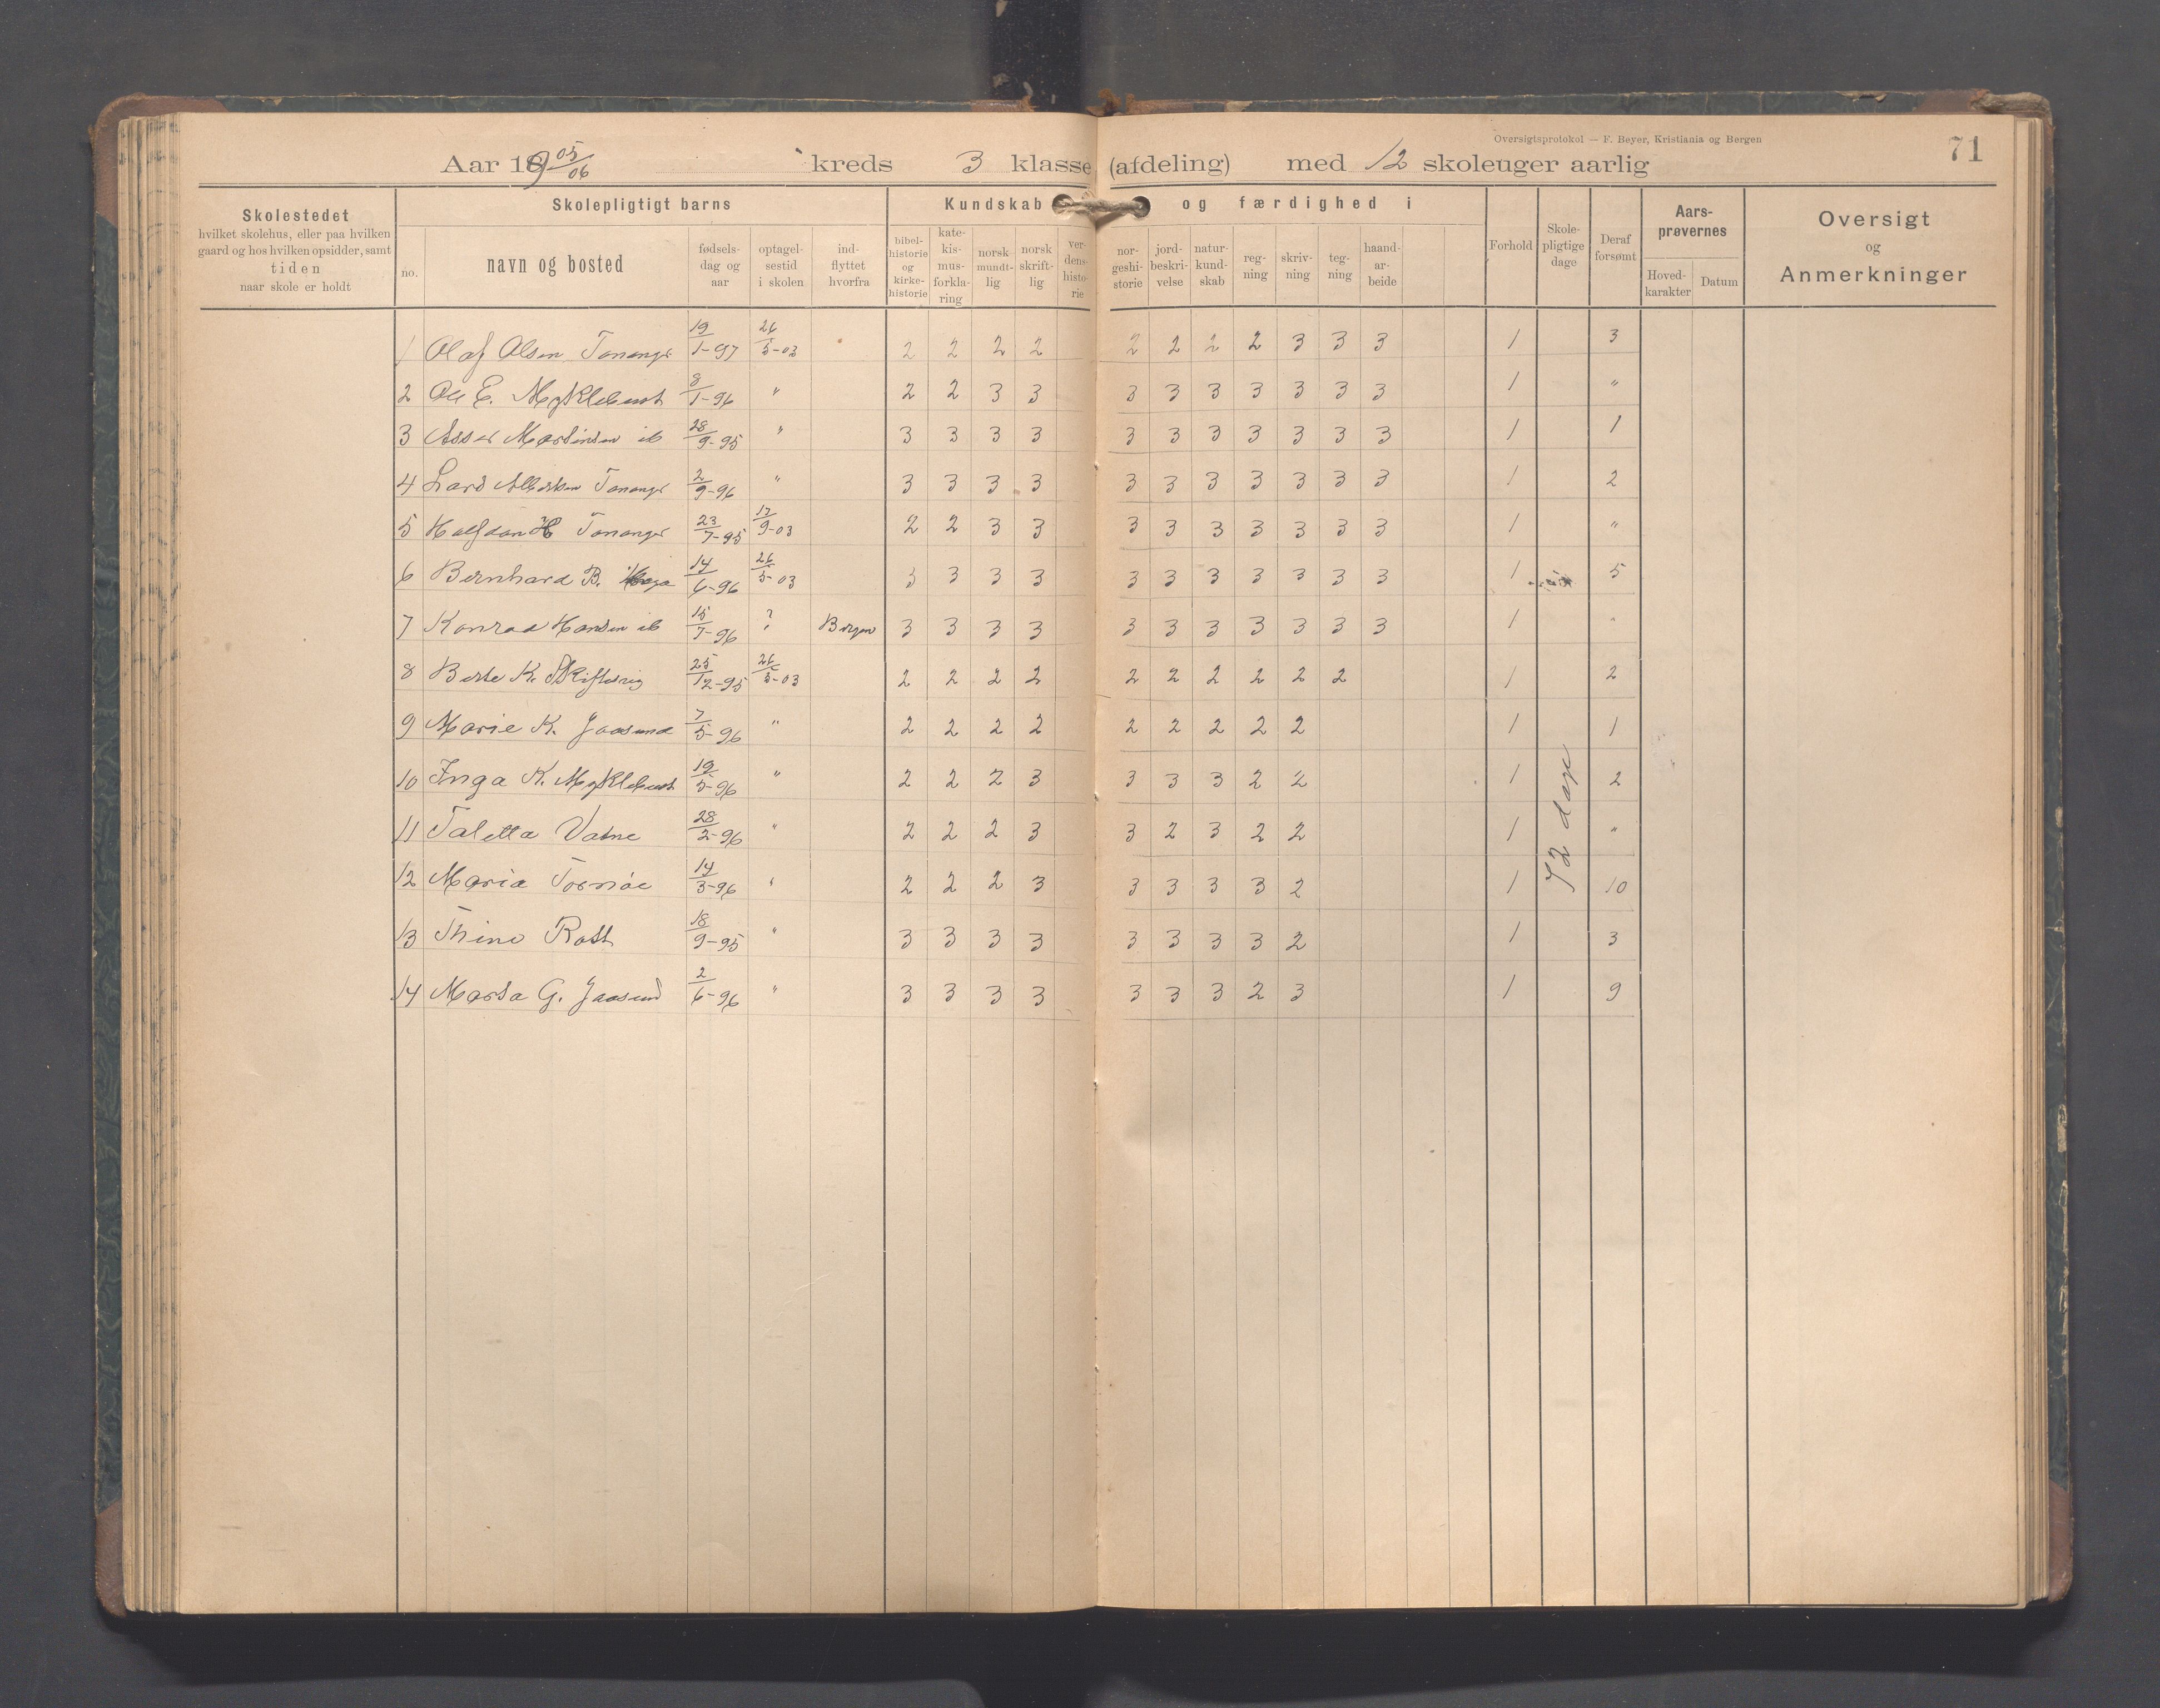 Oversigtsprotokol — F. Beyer, Kristiania og Bergen
71
Aar 1905/06 kreds 3 klasse (afdeling) med 12 skoleuger aarlig
Skolestedet
hvilket skolehus, eller paa hvilken
gaard og hos hvilken opsidder, samt
tiden
naar skole er holdt
Skolepligtigt barns
no.
navn og bosted
fødsels-
dag og
aar
optagel-
sestid
i skolen
ind-
flyttet
hvorfra
Kundskab og færdighed i
bibel-
historie
og
kirke-
historie
kate-
kis-
mus-
forkla-
ring
norsk
mundt-
lig
norsk
skrift-
lig
ver-
dens-
histo-
rie
nor-
geshi-
storie
jord-
beskri-
velse
natur-
kund-
skab
reg-
ning
skriv-
ning
teg-
ning
haand-
ar-
beide
Forhold
Skole-
pligtige
dage
Deraf
forsømt
Aars-
prøvernes
Hoved-
karakter
Datum
Oversigt
og
Anmerkninger
1 Olaf Olsen Tananger 19/1-97 26/5-03 2 2 2 2 2 2 2 2 3 3 3 1 3
2 Ole E. Myklebust 8/1-96 " 2 2 3 3 3 3 3 3 3 3 3 1 "
3 Asser Martinsen ib 28/9-95 " 3 3 3 3 3 3 3 3 3 3 3 1 1
4 Lars Albertsen Tananger 2/9-96 " 3 3 3 3 3 3 3 3 3 3 3 1 2
5 Halfdan H Tananger 23/7-95 17/9-03 2 2 3 3 3 3 3 3 3 3 3 1 "
6 Bernhard B. Haga 14/6-96 26/5-03 3 3 3 3 3 3 3 3 3 3 3 1 5
7 Konrad Hansen ib 15/7-96 ? Bergen 3 3 3 3 3 3 3 3 3 3 3 1 "
8 Berte K. Skiftesvig 25/12-95 26/5-03 2 2 2 2 2 2 2 2 2 2 1 2
9 Marie K. Jaasund 7/5-96 " 2 2 2 2 2 2 2 2 2 1 1
10 Inga K. Myklebust 19/5-96 " 2 2 2 3 3 3 3 2 2 1 2
11 Taletta Vatne 28/2-96 " 2 2 2 3 3 2 3 2 2 1 "
12 Maria Tornøe 14/3-96 " 2 2 2 3 3 3 3 3 2 1 10
13 Thine Rott 18/9-95 " 3 3 3 3 3 3 3 3 2 1 3
14 Marta G. Jaasund 2/6-96 " 3 3 3 3 3 3 3 2 3 1 9
72 dage